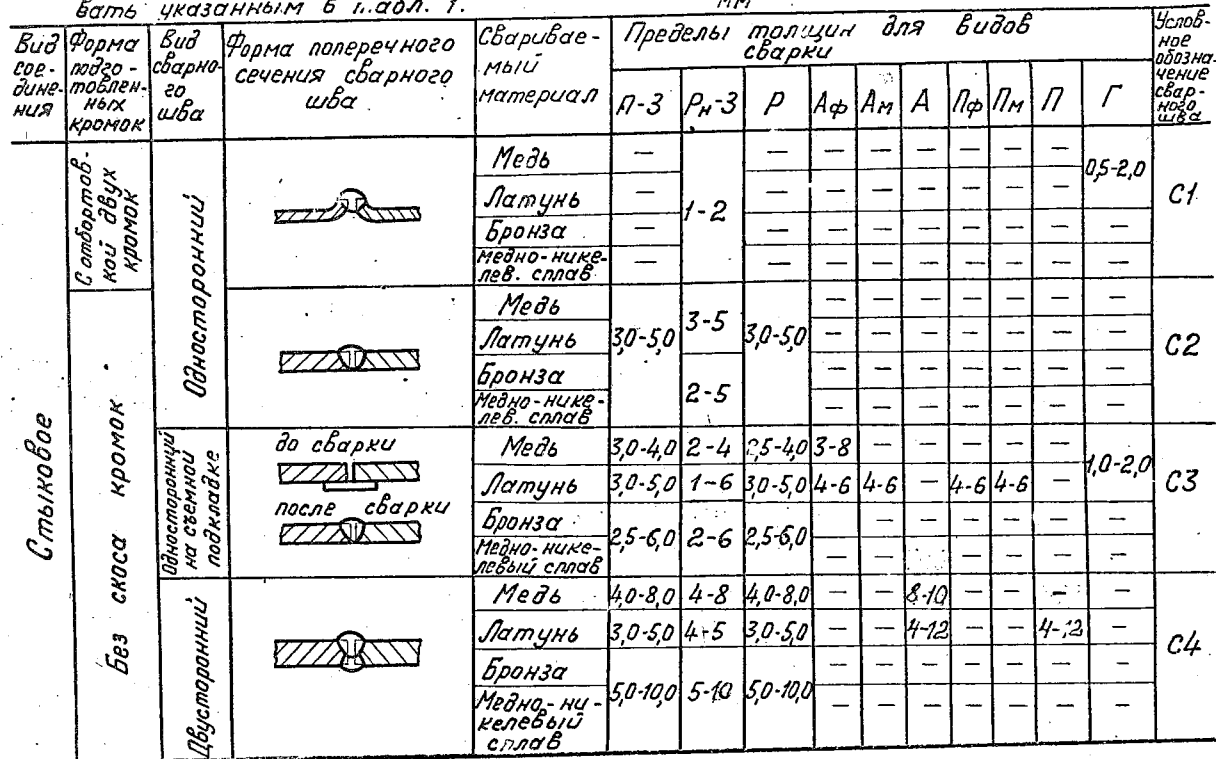 вать указанным в табл. 1.
мм
Вид сое-динения
Форма подго-товлен-ных кромок
Вид сварно-го шва
Форма поперечного сечения сварного шва
Сваривае-мый материал
Пределы толщин для видов сварки
Услов-ное обозна-чение свар-ного шва
А-3 Рн-3 Р Аф Ам А Пф Пм П Г
Стыковое
С отбортов-кой двух кромок
Односторонний
Медь — — — — — — — —
Латунь — — — — — — — —
Бронза — — — — — — — — —
Медно-нике-лев. сплав — — — — — — — — —
1-2
0,5-2,0
С1
Без скоса кромок
Медь — — — — — — —
Латунь — — — — — — —
Бронза — — — — — — —
Медно-нике-лев. сплав — — — — — — —
3,0-5,0
3-5
2-5
3,0-5,0
С2
Односторонний на съемной подкладке
до сварки
после сварки
Медь 3,0-4,0 2-4 2,5-4,0 3-8 — — — — —
Латунь 3,0-5,0 1-6 3,0-5,0 4-6 4-6 — 4-6 4-6 —
1,0-2,0
Бронза — — — — — — —
Медно-нике-левый сплав — — — — — — —
2,5-6,0 2-6 2,5-6,0
С3
Двусторонний
Медь 4,0-8,0 4-8 4,0-8,0 — — 8-10 — — - -
Латунь 3,0-5,0 4-5 3,0-5,0 — — 4-12 — — 4-12 —
Бронза — — — — — — —
Медно-ни-келевый сплав — — — — — — —
5,0-10,0 5-10 5,0-10,0
С4